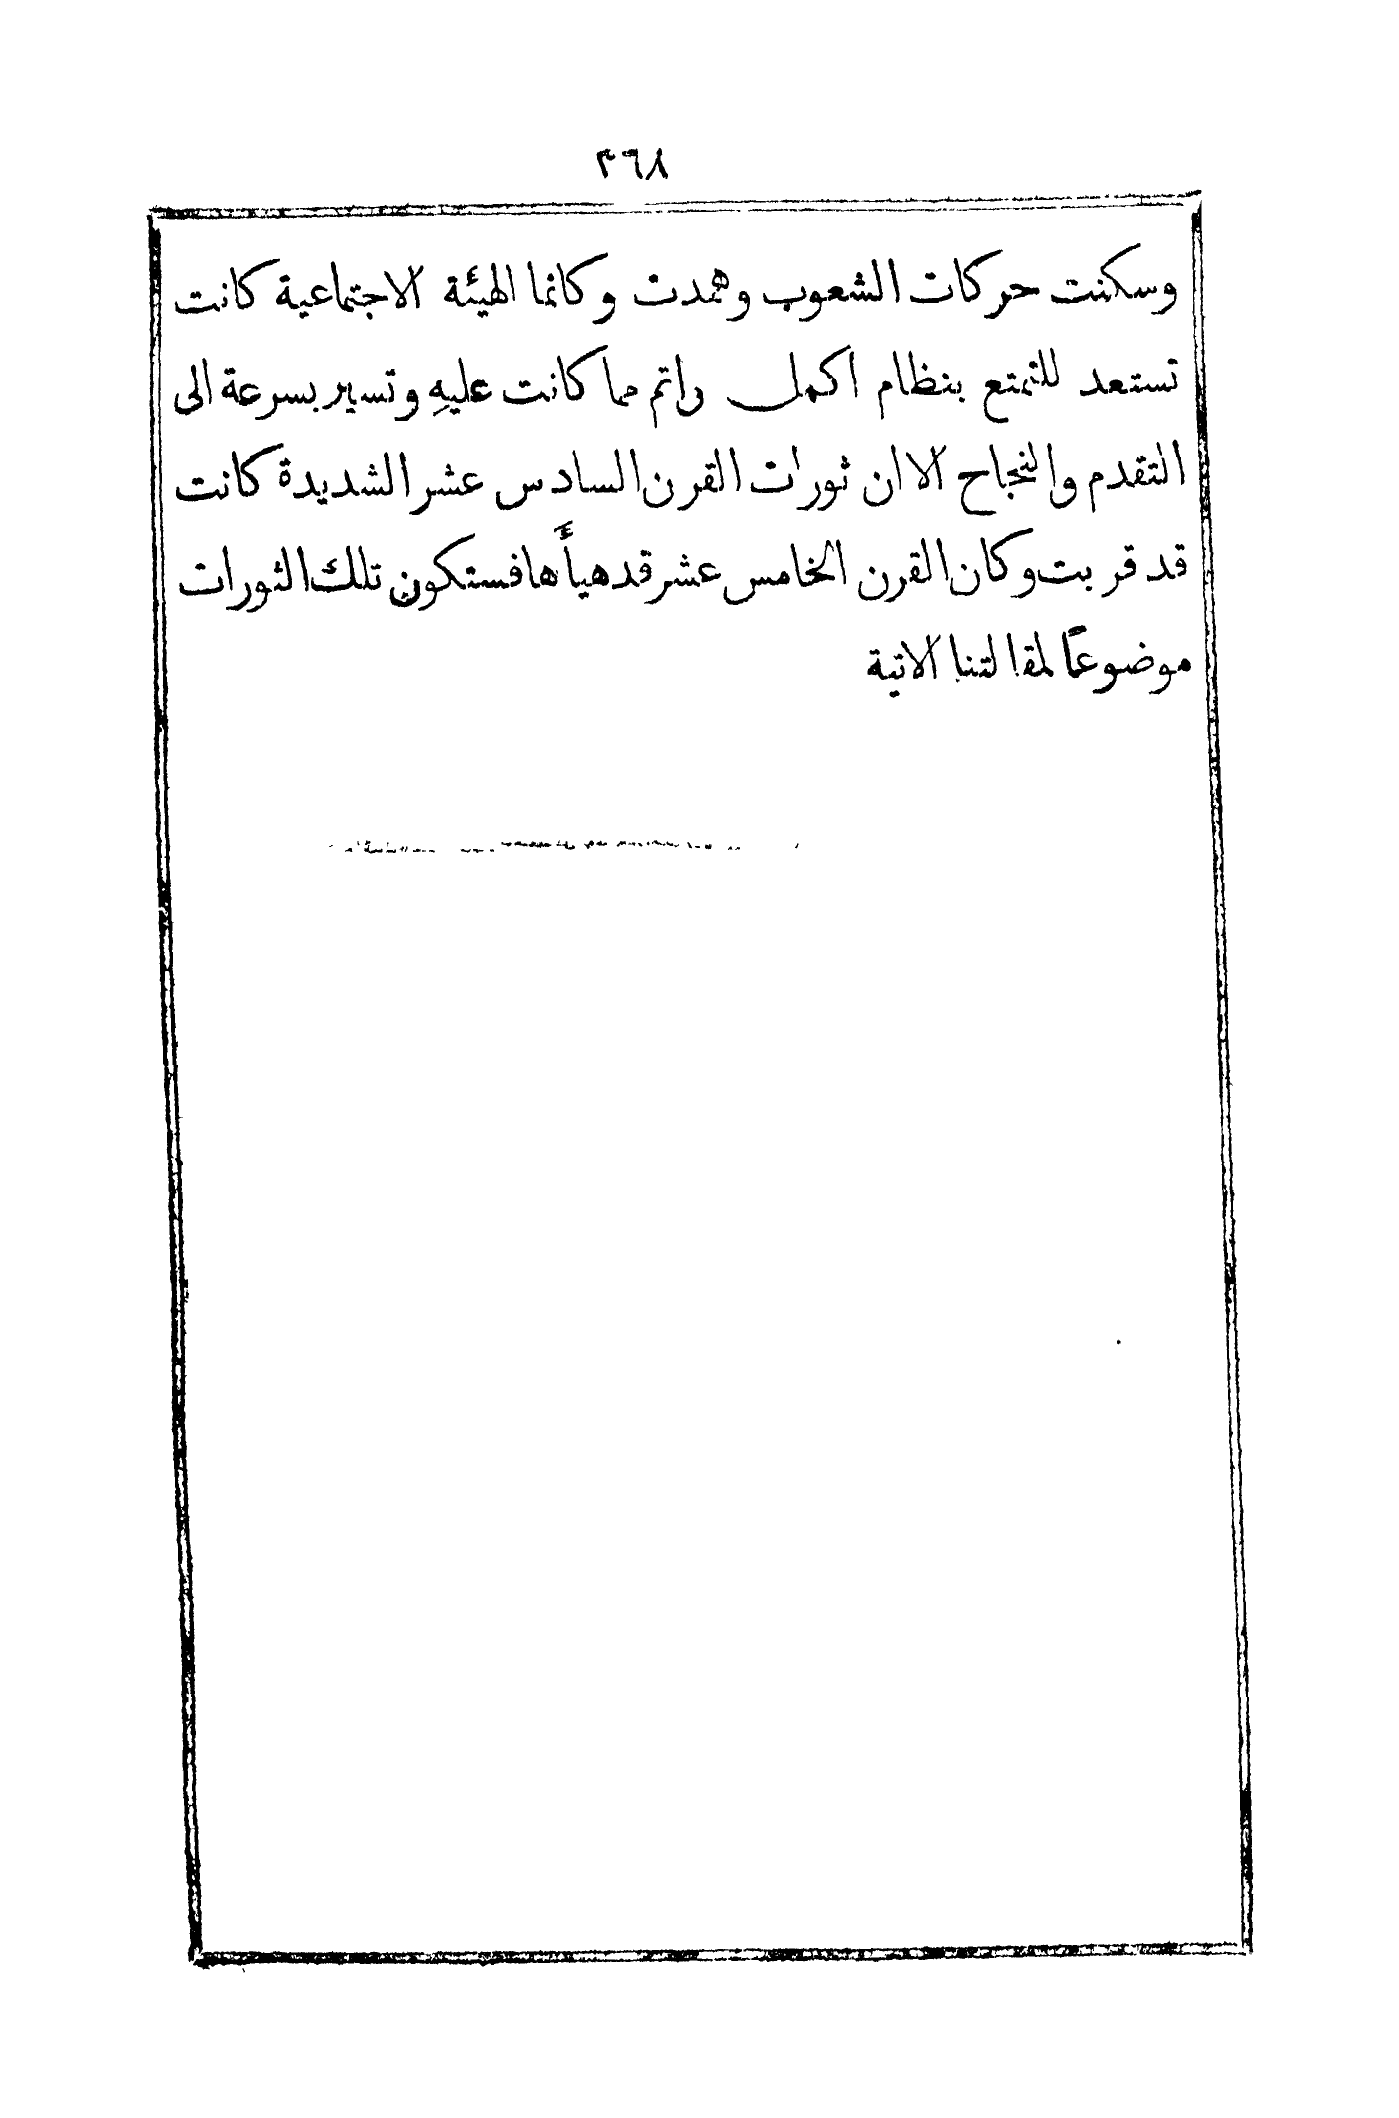 ٣٦٨
وسكنت حركات الشعوب وهمدت وكانما الهيئة الاجتماعية كانت
تستعد للتمتع بنظام اكمل واتم مما كانت عليهِ وتسير بسرعة الى
التقدم والنجاح الا ان ثورات القرن السادس عشر الشديدة كانت
قد قربت وكان القرن الخامس عشر قد هيأَها فستكون تلك الثورات
موضوعًا لمقالتنا الاتية